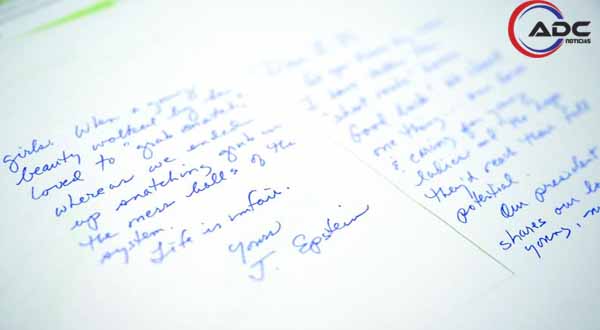 ADC
NOTICIAS
girls. When a young
beauty walked by he
loved to "grab snatch,"
whereas we ended
up snatching grub in
the mess halls of the
system.
Life is unfair.
Yours
J. Epstein
Dear
As you know by now
I have taken the
"short route"
Good luck! We shared
one thing our love
& caring for young
ladies and the hope
they'd reach their full
potential.
Our president
shares our lo
young,